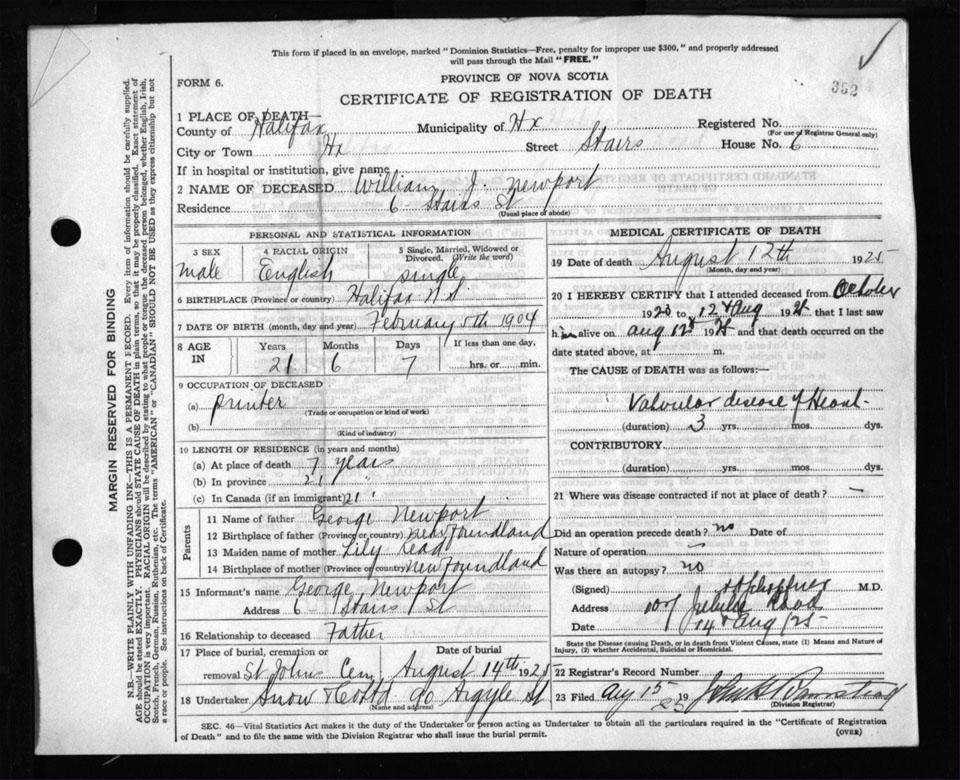 This form if placed in an envelope, marked "Dominion Statistics—Free, penalty for improper use $300," and properly addressed
will pass through the Mail "FREE."
FORM 6.
PROVINCE OF NOVA SCOTIA
352
CERTIFICATE OF REGISTRATION OF DEATH
1 PLACE OF DEATH—
County of Halifax Municipality of Hx Registered No.
(For use of Registrar General only)
City or Town Hx Street Stairs House No. 6
If in hospital or institution, give name
2 NAME OF DECEASED William J. Newport
Residence 6 Stairs St
(Usual place of abode)
PERSONAL AND STATISTICAL INFORMATION
3 SEX 4 RACIAL ORIGIN 5 Single, Married, Widowed or Divorced. (Write the word)
male English single
6 BIRTHPLACE (Province or country) Halifax N.S.
7 DATE OF BIRTH (month, day and year) February 5th 1904
8 AGE IN Years Months Days If less than one day,
21 6 7 hrs. or min.
9 OCCUPATION OF DECEASED
(a) printer
(Trade or occupation or kind of work)
(b)
(Kind of industry)
10 LENGTH OF RESIDENCE (in years and months)
(a) At place of death 7 years
(b) In province 21 "
(c) In Canada (if an immigrant) 21 "
Parents
11 Name of father George Newport
12 Birthplace of father (Province or country) Newfoundland
13 Maiden name of mother Lily Read
14 Birthplace of mother (Province or country) Newfoundland
15 Informant's name George Newport
Address 6 Stairs St
16 Relationship to deceased Father
17 Place of burial, cremation or Date of burial
removal St Johns Cem August 14th 1925
18 Undertaker Snow & Co Ltd 90 Argyle St
(Name and address)
MEDICAL CERTIFICATE OF DEATH
19 Date of death August 12th 1925
(Month, day and year)
20 I HEREBY CERTIFY that I attended deceased from October
1920 to 12th Aug 1925 that I last saw
him alive on Aug 12th 1925 and that death occurred on
date stated above, at m.
The CAUSE of DEATH was as follows:—
Valvular disease of Heart
(duration) 3 yrs. mos. dys.
CONTRIBUTORY
(duration) yrs. mos. dys.
21 Where was disease contracted if not at place of death? —
Did an operation precede death? no Date of
Nature of operation —
Was there an autopsy? no
(Signed) M.D.
Address Jubilee Road
Date 14th Aug/25
State the Disease causing Death, or in Death from Violent Causes, state (1) Means and Nature of
Injury, (2) whether Accidental, Suicidal or Homicidal.
22 Registrar's Record Number
23 Filed Aug 15 1925 John
(Division Registrar)
SEC. 46—Vital Statistics Act makes it the duty of the Undertaker or person acting as Undertaker to obtain all the particulars required in the "Certificate of Registration
of Death" and to file the same with the Division Registrar who shall issue the burial permit.
(OVER)
MARGIN RESERVED FOR BINDING
N.B.—WRITE PLAINLY WITH UNFADING INK—THIS IS A PERMANENT RECORD. Every item of information should be carefully supplied.
AGE should be stated EXACTLY. PHYSICIANS should STATE CAUSE OF DEATH in plain terms, so that it may be properly classified. Exact statement of
OCCUPATION is very important. RACIAL ORIGIN will be described by stating to what people or tongue the deceased person belonged, whether English, Irish,
Scotch, French, German, Russian, Ruthenian, etc. The terms "AMERICAN" or "CANADIAN" SHOULD NOT BE USED as they express citizenship but not
a race or people. See instructions on back of Certificate.